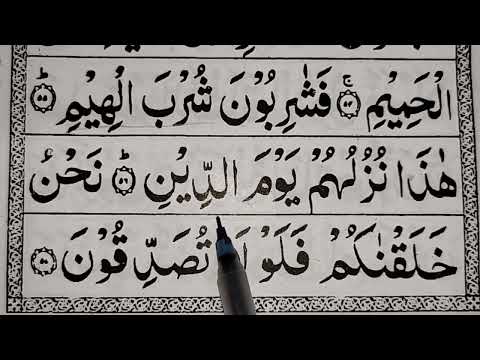 الْحَمِيْمِ ۚ﴿۵۴﴾ فَشٰرِبُوْنَ شُرْبَ الْهِيْمِ ؕ﴿۵۵﴾
هٰذَا نُزُلُهُمْ يَوْمَ الدِّيْنِ ؕ﴿۵۶﴾ نَحْنُ
خَلَقْنٰكُمْ فَلَوْلَا تُصَدِّقُوْنَ ﴿۵۷﴾